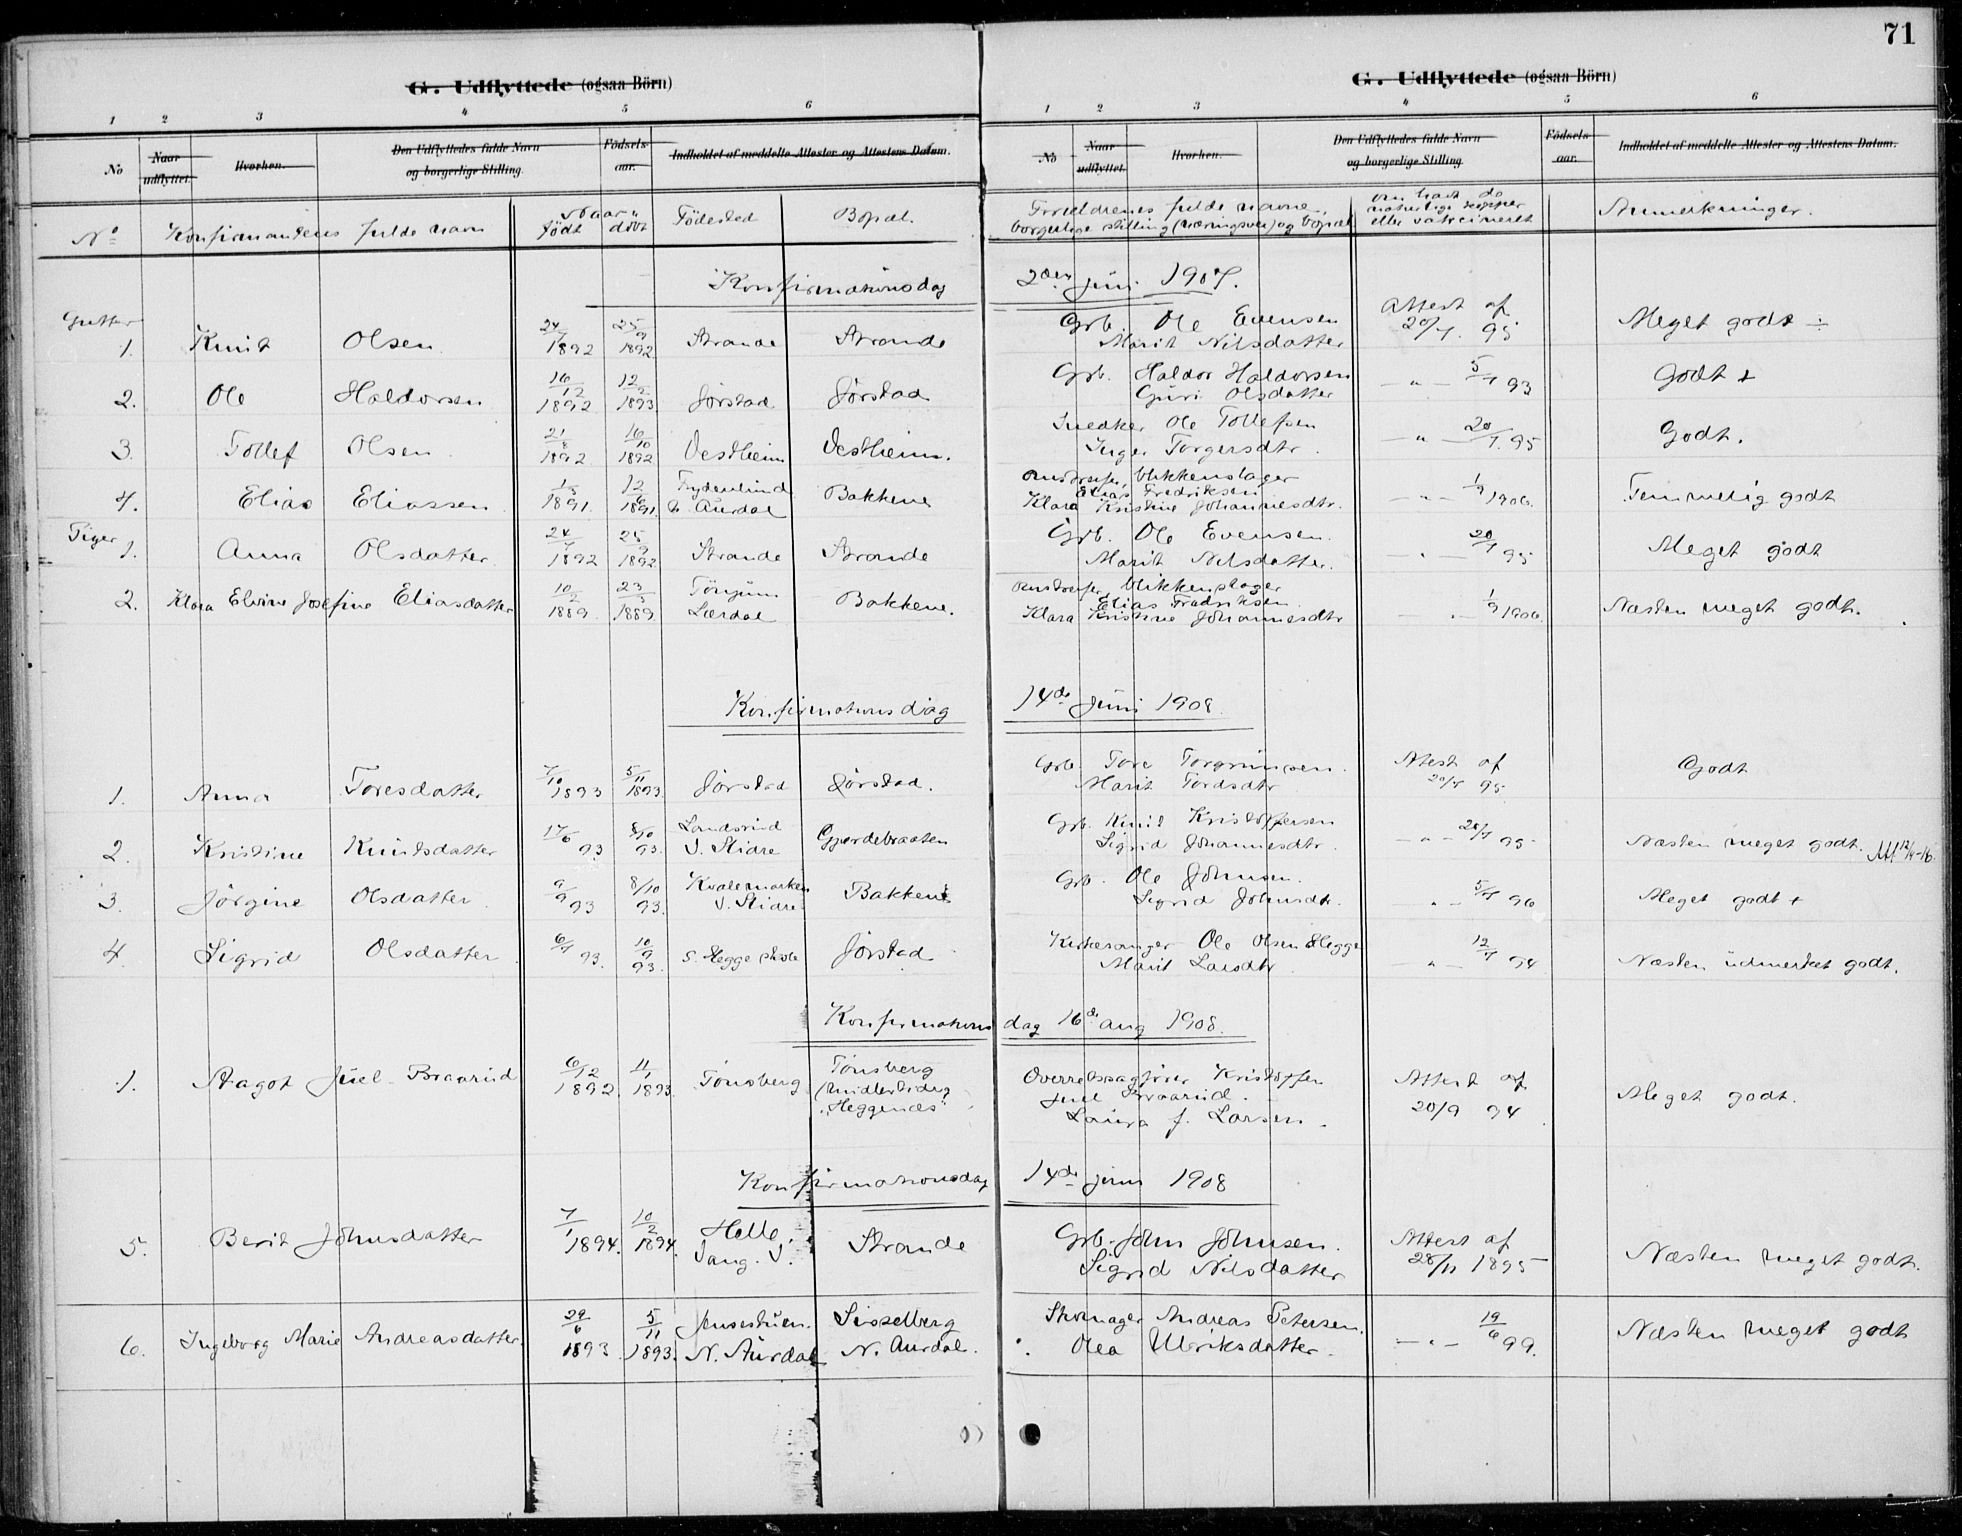 71
G. Udflyttede (ogsaa Börn)
G. Udflyttede (ogsaa Börn)
1 2 3 4 5 6
1 2 3 4 5 6
No Naar udflyttet. Hvorhen. Den Udflyttedes fulde Navn og borgerlige Stilling. Födsels-aar. Indholdet af meddelte Attester og Attestens Datum.
No Naar udflyttet. Hvorhen. Den Udflyttedes fulde Navn og borgerlige Stilling Födsels-aar. Indholdet af meddelte Attester og Attestens Datum.
No Konfirmantens fulde navn Naar födt döbt Födested Bopæl. Forældrenes fulde navne, borgerlige stilling (næringsvei) og bopæl om havt de naturlige kopper eller vakcineret Anmerkninger.
Konfirmationsdag 2den juni 1907.
Gutter
1. Knut Olsen 24/7 1892 25/9 1892 Strande Strande Grb. Ole Evensen Marit Nilsdatter Attest af 20/7. 95 Meget godt ÷
2. Ole Haldorsen 16/12 1892 12/2 1893 Jörstad Jörstad Grb. Haldor Haldorsen Guri Olsdatter — " — 5/7 93 Godt +
3. Tollef Olsen 21/8 1892 16/10 1892 Vestheim Vestheim. Snedker Ole Tollefsen Inger Torgersdtr. — " — 20/7. 95 Godt.
4. Elias Eliassen 1/3 1891. 12/6 1891. Frydenlund N. Aurdal Bakkene blikkenslager Elias Fredriksen Klara Kristine Johannesdtr. — " — 1/9 1906. Temmelig godt
Piger
1. Anna Olsdatter 24/7 1892 25/9 1892 Strande Strande Grb. Ole Evensen. Marit Nilsdatter. — " — 20/7 95 Meget godt
2. Klara Elvine Josefine Eliasdatter 10/2 1889. 23/3 1889 Tönjum Lærdal Bakkene. blikkenslager Elias Fredriksen. Klara Kristine Johannesdtr — " — 1/9 1906. Næsten meget godt.
Konfirmationsdag 14de juni 1908.
1. Anna Toresdatter 7/10 1893 5/11 1893. Jörstad Jörstad. Grb. Tore Torgrimsen. Marit Tordsdtr Attest af 20/7 95 Godt
2. Kristine Knutsdatter 17/6 93 8/10 93. V. Slidre Gjerdebraaten Grb. Knut Kristoffersen Sigrid Johannesdtr. — " — 20/7 95 Næsten meget godt. Att 12/4-16.
3. Jörgine Olsdatter 9/9 93 8/10 93. Kvalemarken V. Slidre Bakkene Grb. Ole Johnsen. Sigrid Johnsdtr. — " — 5/7 96 Meget godt +
4. Sigrid Olsdatter 6/7 93. 10/9 93. S. Hegge skole Jörstad Kirkesanger Ole Olsen Hegge Marit Larsdtr. — " — 12/7 94 Næsten udmerket godt.
Konfirmationsdag 16de aug 1908.
1. Aagot Juel-Braarud 6/12 1892. 11/1 1893. Tönsberg Tönsberg (midlertidig "Heggenes") Overretssagförer Kristoffer Juel Braarud. Laura f. Larsen. Attest af 20/9 94 Meget godt.
Konfirmationsdag 14de juni 1908
5. Berit Johnsdatter 7/1 1894. 10/2 1894. Helle, Vang. V. Strande Grb. John Johnsen. Sigrid Nilsdatter Attest af 28/11 1895 Næsten meget godt.
6. Ingeborg Marie Andreasdatter. 29/6 1893 5/11 1893. Jensestuen. N. Aurdal Sisselberg N. Aurdal. Skomager Andreas Petersen. Olea Ulriksdatter. — " — 19/6 99. Næsten meget godt